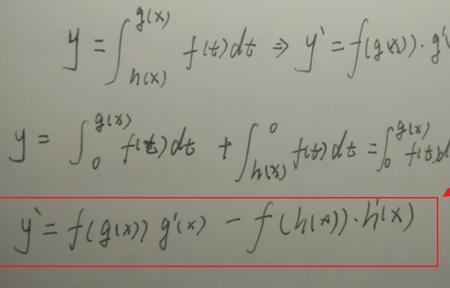 y = ∫_{h(x)}^{g(x)} f(t)dt ⇒ y' = f(g(x))·g'
y = ∫_{0}^{g(x)} f(t)dt + ∫_{h(x)}^{0} f(t)dt = ∫_{0}^{g(x)} f(t)d
y' = f(g(x)) g'(x) - f(h(x))·h'(x)